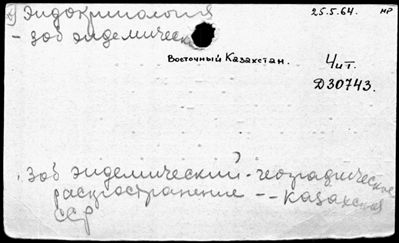 Эндокринология
25.5.64. нр
- зоб эндемическ
Восточный Казахстан.
Чит.
D30743.
зоб эндемический - географическое
распространение -- Казахская
ССР